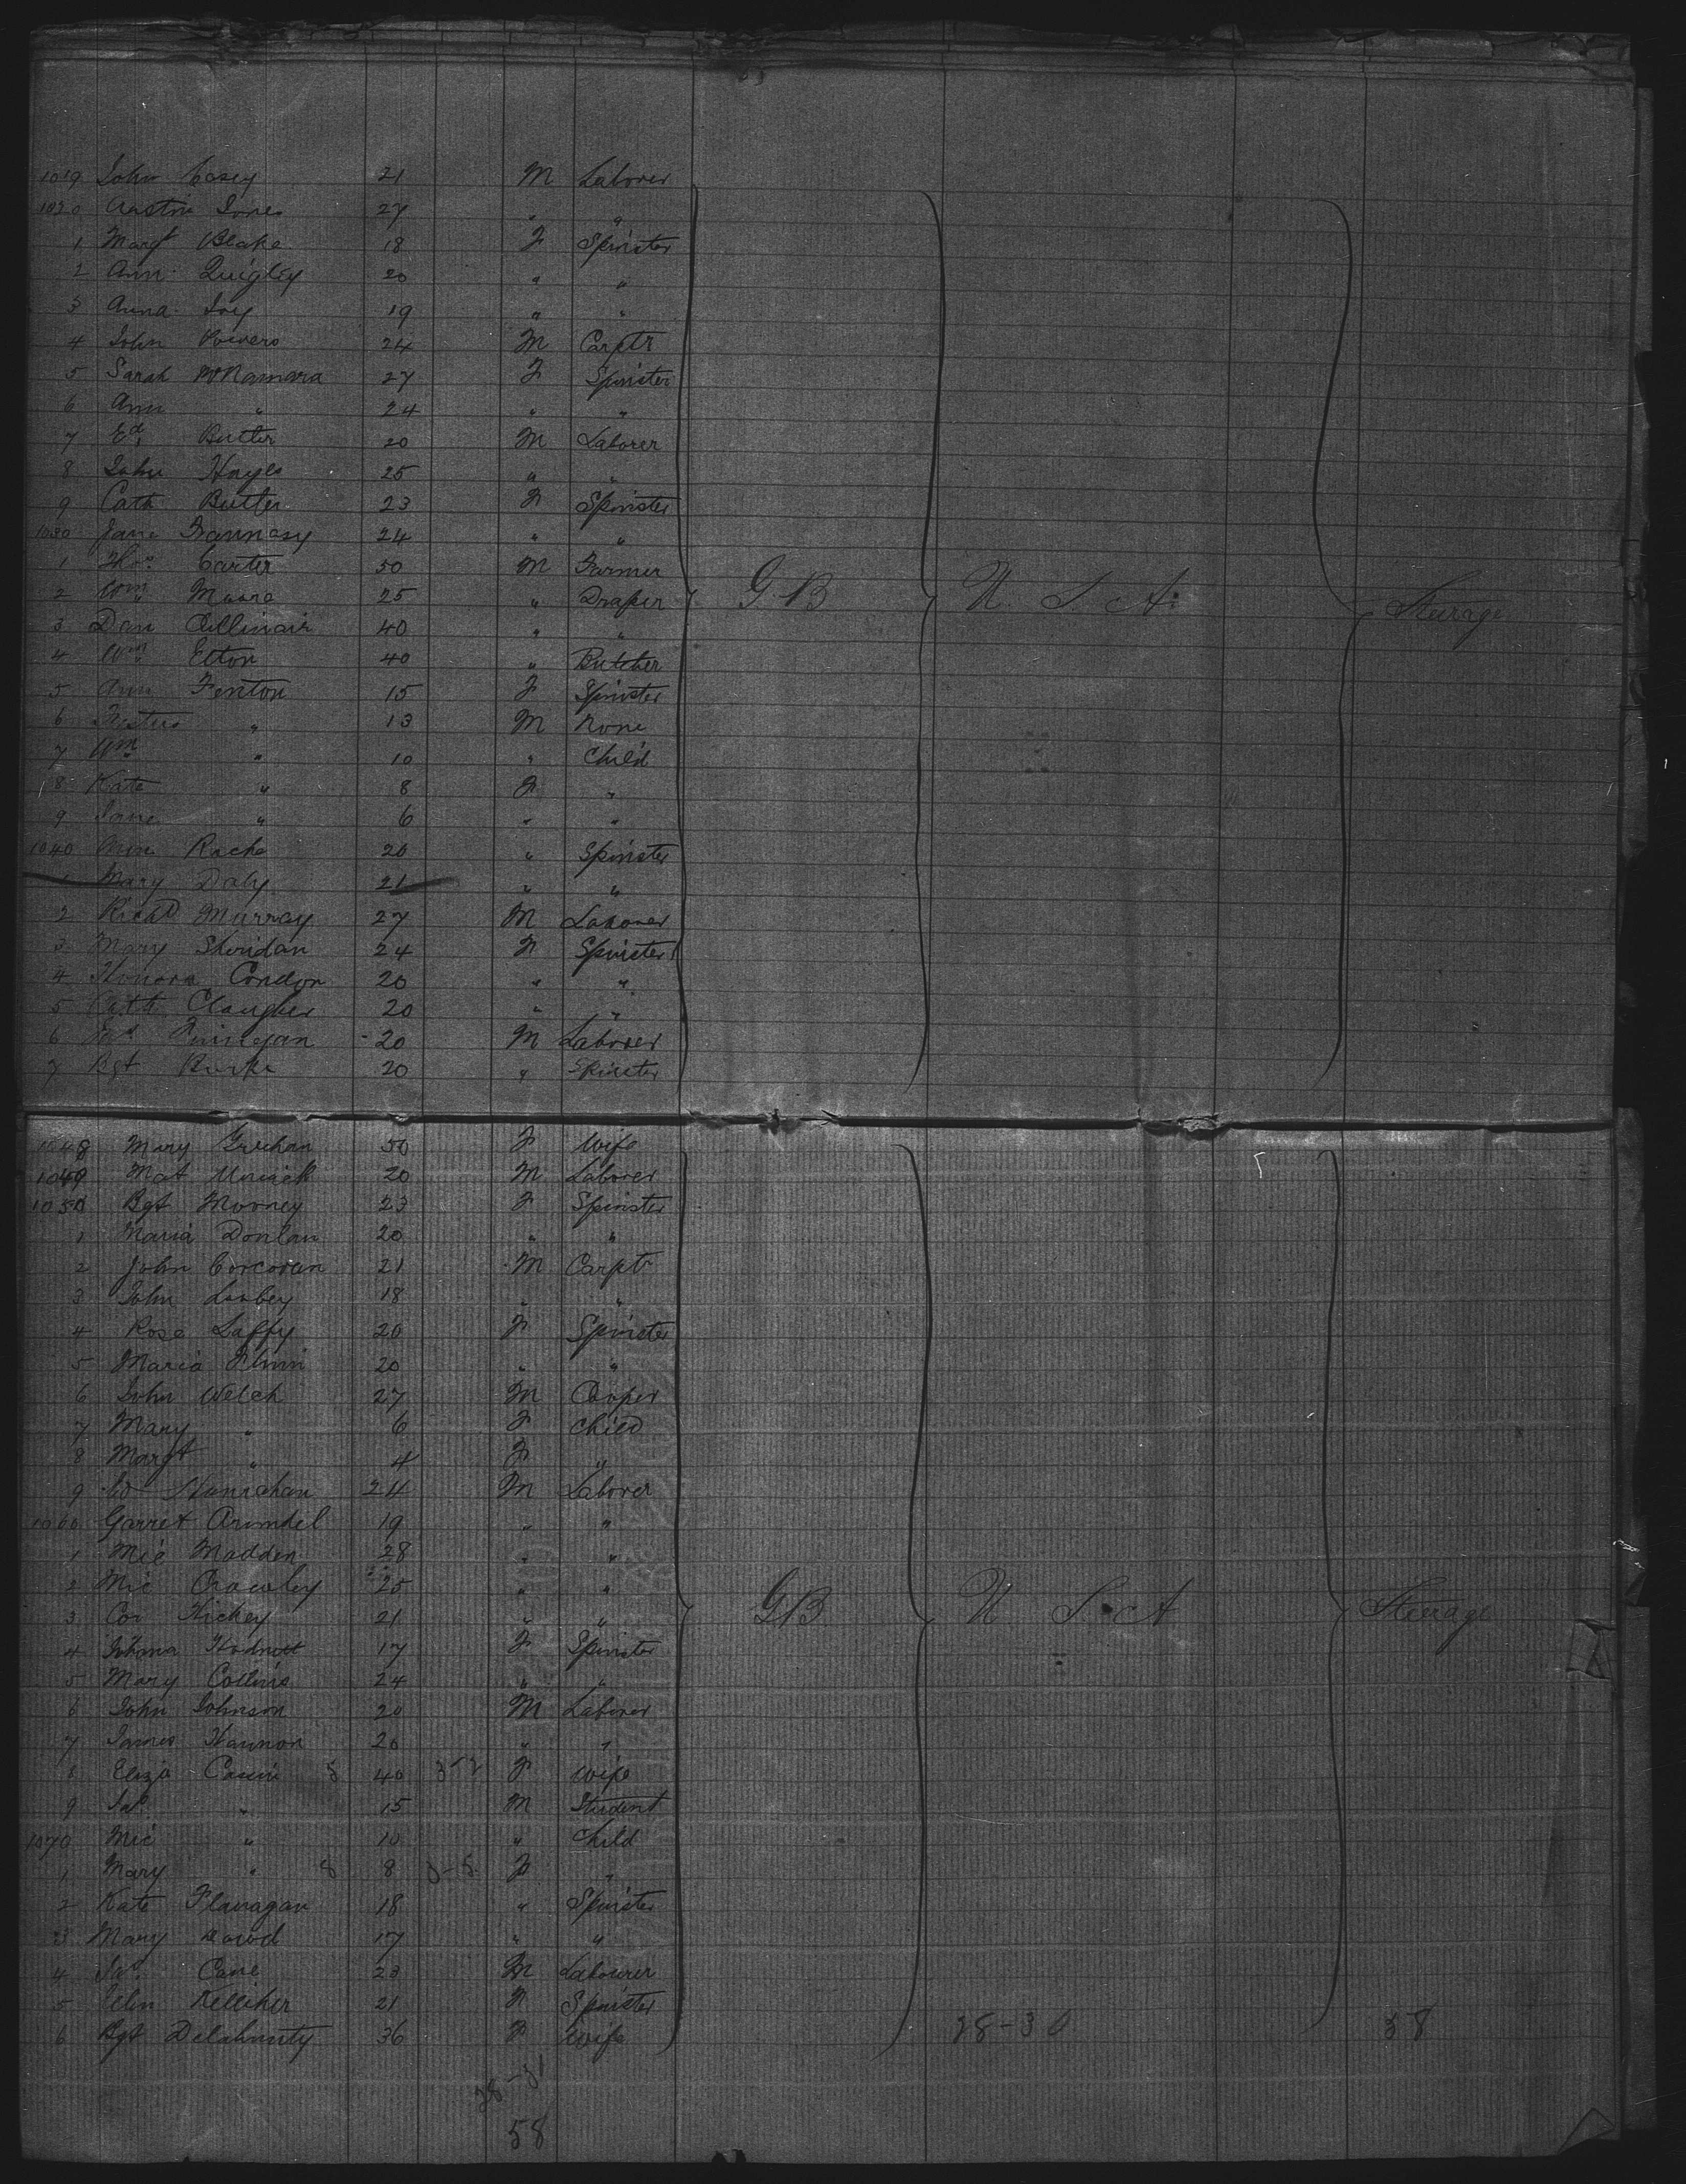 1019 John Casey 21 M Laborer
1020 Jones 27 " "
1 Margt Blake 18 F Spinster
2 Ann Quigley 20 " "
3 Anna Joy 19 " "
4 John Powers 24 M Carptr
5 Sarah McNamara 27 F Spinster
6 Ann " 24 " "
7 Ed. Butler 20 M Laborer
8 John Hayes 25 " "
9 Cath Butler 23 F Spinster
1030 Jane 24 " "
1 Thos. Carter 50 M Farmer
2 Wm Moore 25 " Draper G.B U. S. A. Steerage
3 Dan 40 " "
4 Wm Etton 40 " Butcher
5 Ann Fenton 15 F Spinster
6 " 13 M None
7 Wm " 10 " Child
8 Kate " 8 F "
9 Jane " 6 " "
1040 Ann Roche 20 " Spinster
1 Mary Daly 21 " "
2 Richd Murray 27 M Laborer
3 Mary Sheridan 24 F Spinster
4 Honora Condon 20 " "
5 Cath Claugher 20 " "
6 Finnegan 20 M Laborer
7 Bgt Burke 20 " Spinster
1048 Mary 50 F Wife
1049 Mat 20 M Laborer
1050 Bgt Mooney 23 F Spinster
1 Maria Donlan 20 " "
2 John Corcoran 21 M Carptr
3 John 18 " "
4 Rose Laffy 20 F Spinster
5 Maria 20 " "
6 John Welch 27 M Cooper
7 Mary " 6 F Child
8 Margt " 4 F "
9 Ed Hanrahan 24 M Laborer
1060 Garret Arundel 19 " "
1 Mic Madden 28 " "
2 Mic Crowley 25 " "
3 Cor Hickey 21 " " G.B U S. A Steerage
4 Johana Hodnott 17 F Spinster
5 Mary Collins 24 " "
6 John Johnson 20 M Laborer
7 James Hannon 20 " "
8 Eliza 40 F Wife
9 Jas. " 15 M Student
1070 Mic " 10 " Child
1 Mary " 8 F "
2 Kate Flanagan 18 " Spinster
3 Mary 17 " "
4 Jas. Cane 23 M Labourer
5 Ellen Kelliher 21 F Spinster
6 Bgt Delahunty 36 F Wife 28-30 58
28-31
58